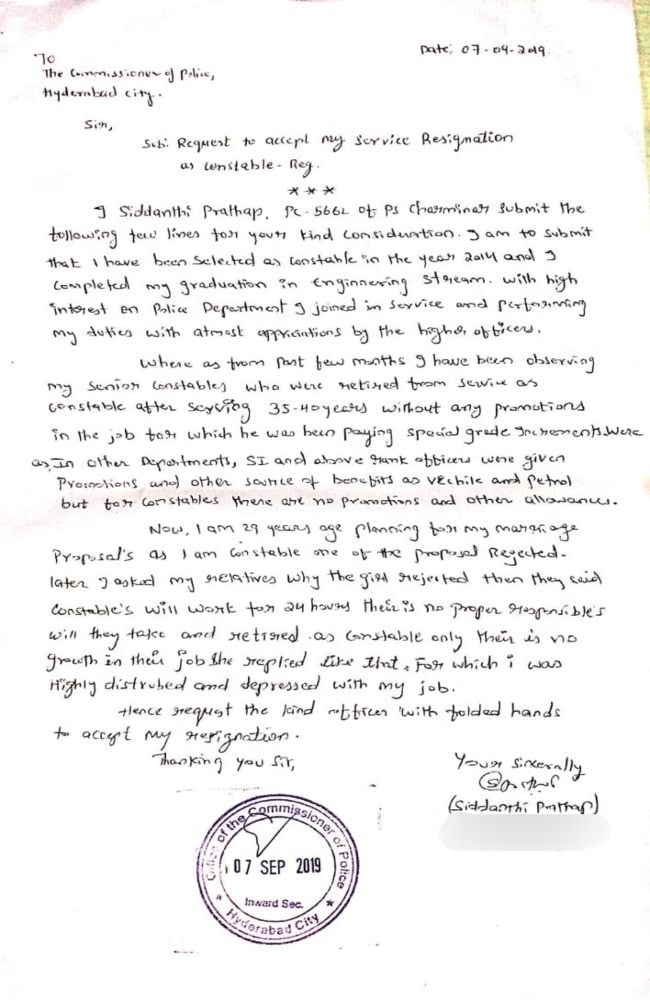 Date; 07-09-2019.
To
The Commissioner of Police,
Hyderabad City.
Sir,
Sub: Request to accept my Service Resignation
as constable - Reg.
***
I Siddanthi Prathap, PC-5662 of PS Charminar submit the
following few lines for your kind consideration. I am to submit
that I have been selected as constable in the year 2014 and I
completed my graduation in Enginnering stream. with high
interest on Police Department I joined in service and performing
my duties with atmost appriciations by the higher officers.
Where as from Past few months I have been observing
my senior constables who were retired from service as
constable after serving 35-40 years without any promotions
in the job for which he was been paying special grade Increments. Were
as, In other Departments, SI and above rank officers were given
Promotions and other source of benefits as vechile and Petrol
but for constables there are no promotions and other allowances.
Now, I am 29 years age planning for my marriage
Proposal's as I am constable one of the proposal Regected-
later I asked my relatives why the girl rejected then they said
Constable's will work for 24 hours their is no proper responsible's
will they take and retired as constable only their is no
growth in their job she replied like that. For which i was
Highly distrubed and depressed with my job.
Hence request the kind officer with folded hands
to accept my resignation.
Thanking you Sir,
Your Sincerally
(Siddanthi Prathap)
Office of the Commissioner of Police
07 SEP 2019
Inward Sec.
★ Hyderabad City ★